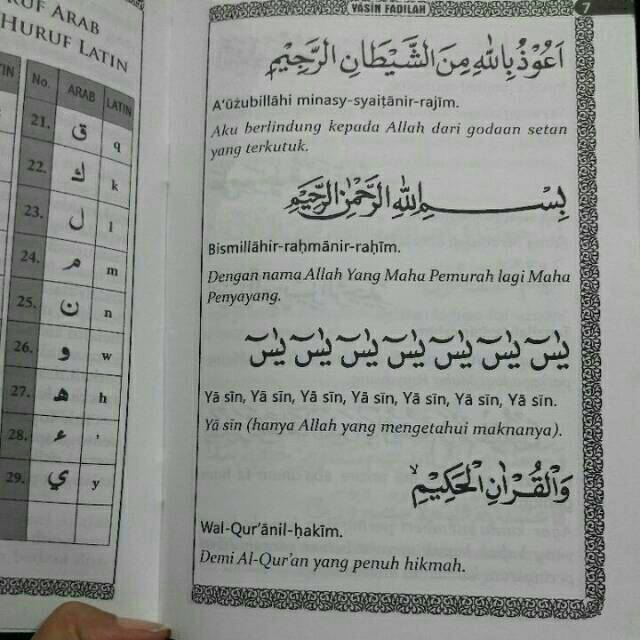 RUF ARAB
HURUF LATIN
No. ARAB LATIN
21. ق q
22. ك k
23. ل l
24. م m
25. ن n
26. و w
27. ه h
28. ء '
29. ي y
YASIN FADILAH 7
اَعُوْذُ بِاللّٰهِ مِنَ الشَّيْطَانِ الرَّجِيْمِ
A'ūżubillāhi minasy-syaiṭānir-rajīm.
Aku berlindung kepada Allah dari godaan setan
yang terkutuk.
بِسْمِ اللّٰهِ الرَّحْمٰنِ الرَّحِيْمِ
Bismillāhir-raḥmānir-raḥīm.
Dengan nama Allah Yang Maha Pemurah lagi Maha
Penyayang.
يٰسۤ يٰسۤ يٰسۤ يٰسۤ يٰسۤ يٰسۤ يٰسۤ
Yā sīn, Yā sīn, Yā sīn, Yā sīn, Yā sīn, Yā sīn, Yā sīn.
Yā sīn (hanya Allah yang mengetahui maknanya).
وَالْقُرْاٰنِ الْحَكِيْمِۙ
Wal-Qur'ānil-ḥakīm.
Demi Al-Qur'an yang penuh hikmah.